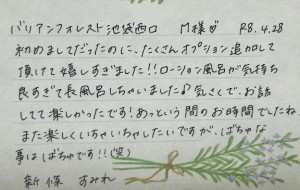 バリアンフォレスト池袋西口 M様♡ R8.4.28
初めましてだったのに、たくさんオプション追加して
頂けて嬉しすぎました!!ローション風呂が気持ち
良すぎて長風呂しちゃいました♪気さくで、お話
してて楽しかったです!あっという間のお時間でしたね。
また楽しくいちゃいちゃしたいですが、ばちゃな
事はばちゃです!!(笑)
新條 すみれ